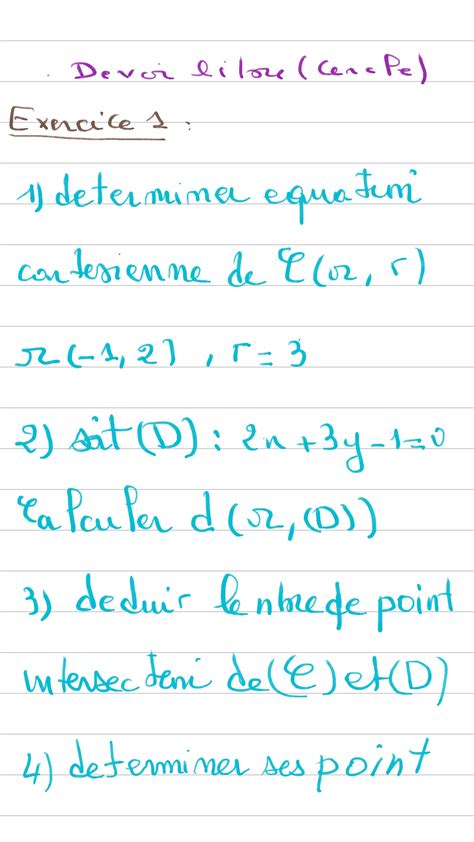 Devoir libre (Cercle)
Exercice 1 :
1) determiner equation
cartesienne de C(Ω, r)
Ω(-1, 2) , r = 3
2) soit (D) : 2x + 3y - 1 = 0
Calculer d(Ω, (D))
3) deduir le nbre de point
intersection de (C) et (D)
4) determiner ses point